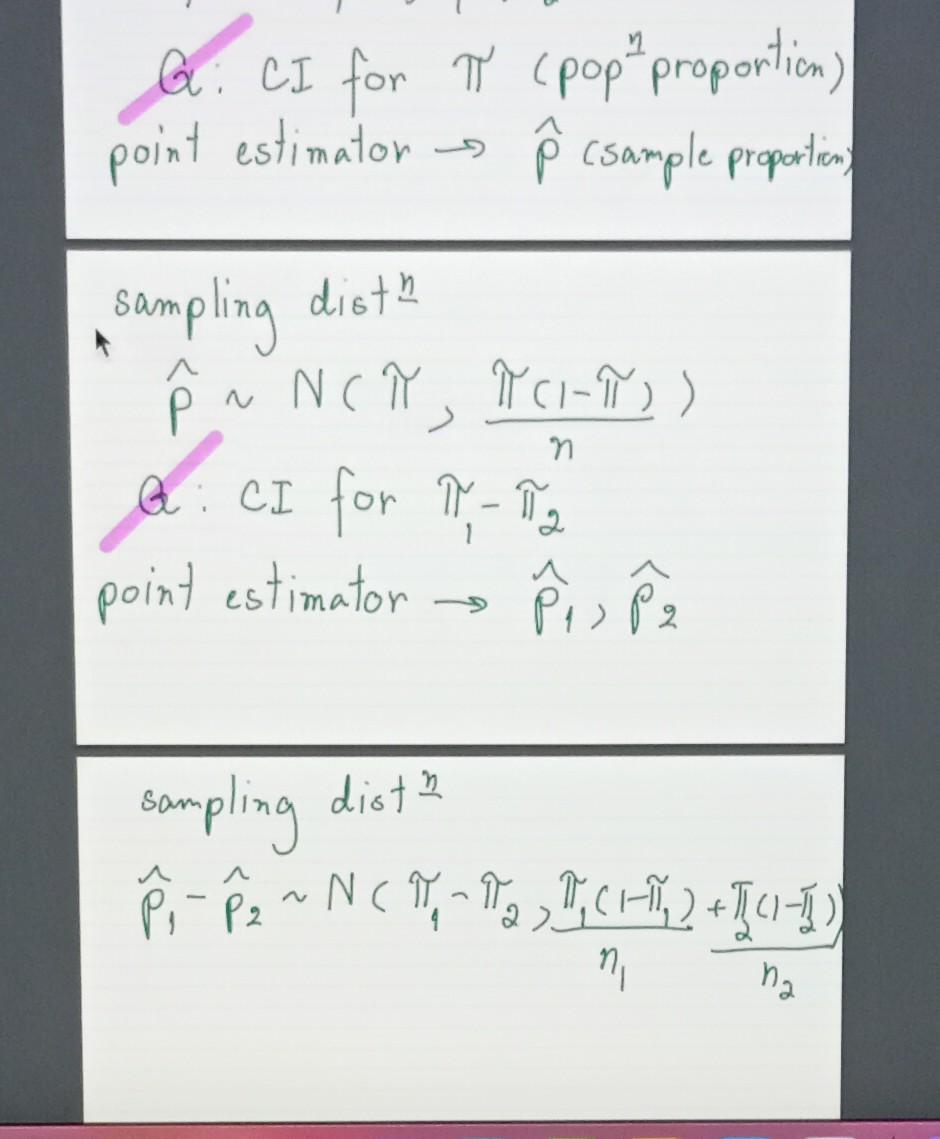 Q: CI for π (popⁿ proportion)
point estimator → p̂ (sample proportion)
sampling distⁿ
p̂ ~ N(π, π(1-π)/n)
Q: CI for π₁ - π₂
point estimator → p̂₁, p̂₂
sampling distⁿ
p̂₁ - p̂₂ ~ N(π₁ - π₂, π₁(1-π₁)/n₁ + π₂(1-π₂)/n₂)